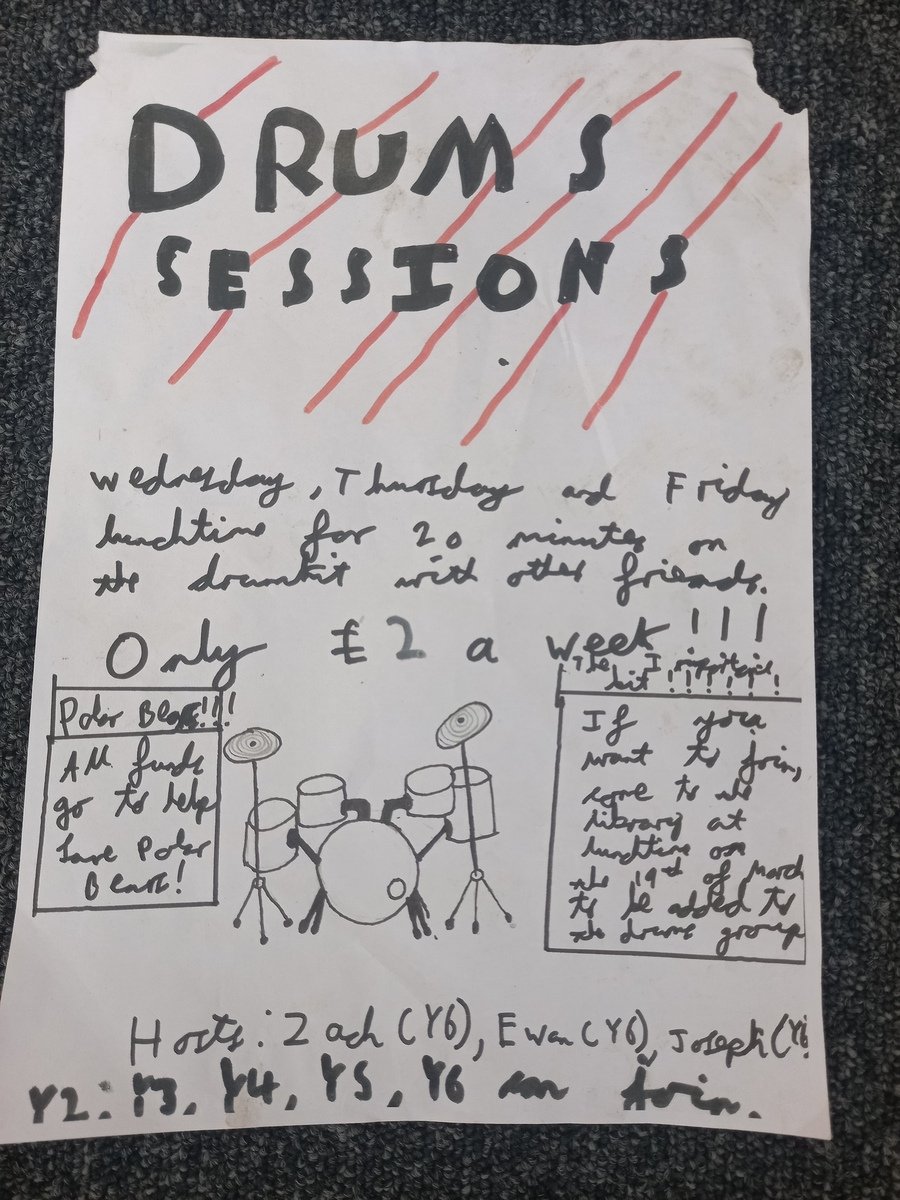 DRUMS
SESSIONS
Wednesday, Thursday and Friday
lunchtime for 20 minutes on
the drumkit with other friends.
Only £2 a week!!!
Polar Bears!!!
All funds
go to help
Save Polar
Bears!
The
bit !!!!!!
If you
want to join,
come to the
library at
lunchtime on
the 19th of March
to be added to
the drums group
Hosts: Zach (Y6), Ewan (Y6), Joseph (Y6
Y2, Y3, Y4, Y5, Y6 can join.